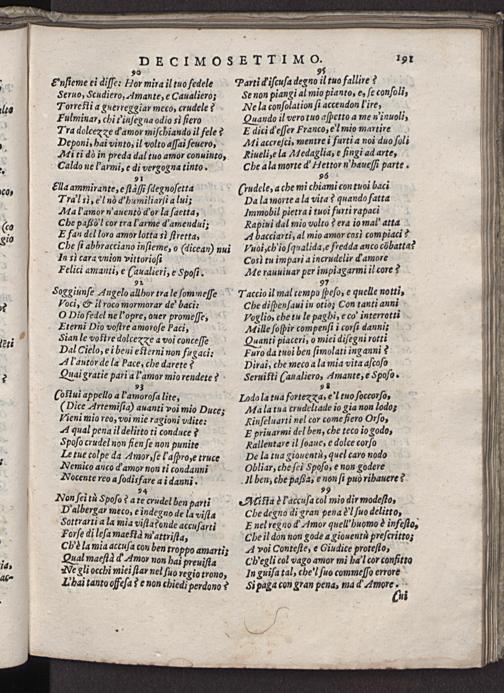 DECIMOSETTIMO. 191
90
Ensieme ei disse: Hor mira il tuo fedele
Servo, Scudiero, Amante, e Cavaliero;
Torresti a guerreggiar meco, crudele?
Fulminar, chi t'insegna odio sì fiero
Tra dolcezze d'amor mischiando il fele?
Deponi, hai vinto, il volto assai severo,
Mi ti dò in preda dal tuo amor convinto,
Caldo ne l'armi, e di vergogna tinto.
91
Ella ammirante, e stàssi sdegnosetta
Tra'l sì, e'l nò d'humiliarsi a lui;
Ma l'amor n'aventò d'or la saetta,
Che passò'l cor tra l'arme d'amendui;
E fan del loro amor lotta sì stretta,
Che si abbracciano insieme, o (dicean) nui
In sì cara union vittoriosi
Felici amanti, e Cavalieri, e Sposi.
92
Soggiunse Angelo allhor tra le sommesse
Voci, & il roco mormorar de' baci:
O Dio sed el ne l'opre, ouer promesse,
Eterni Dio vostre amorose Paci,
Sian le vostre dolcezze a voi concesse
Dal Cielo, e i beni esterni non fugaci:
A l'autor de la Pace, che darete?
Quai gratie pari a l'amor mio rendete?
93
Costui appello a l'amorosa lite,
(Dice Artemisia) auanti voi mio Duce;
Vieni mio reo, voi mie ragioni vdite:
A qual pena il delitto ti conduce?
Sposo crudel non fien se non punite
Le tue colpe da Amor, se l'aspro, e truce
Nemico anco d'amor non ti condanni
Nocente reo a sodisfare a i danni.
94
Non sei tù Sposo? a te crudel ben parti
D'albergar meco, e indegno de la vista
Sottrarti a la mia vista? onde accusarti
Forse di lesa maestà m'attrista,
Ch'è la mia accusa con ben troppo amarti;
Qual maestà d'Amor non hai prevista
Ne gli occhi miei star nel suo regio trono,
L'hai tanto offesa? e non chiedi perdono?
95
Parti d'iscusa degno il tuo fallire?
Se non piangi al mio pianto, e, se consoli,
Ne la consolation si accendon l'ire,
Quando il vero tuo aspetto a me n'inuoli,
E dici d'esser Franco, e'l mio martire
Mi accresci, mentre i furti a noi duo soli
Riueli, e la Medaglia, e fingi ad arte,
Che a la morte d'Hettor n'hauessi parte.
96
Crudele, a che mi chiami con tuoi baci
Da la morte a la vita? quando fatta
Immobil pietra i tuoi furti rapaci
Rapiui dal mio volto? era io mal' atta
A bacciarti, al mio amor così compiaci?
Vuoi, ch'io squalida, e fredda anco cōbatta?
Così tu impari a incrudelir d'amore
Me rauuiuar per impiagarmi il core?
97
Taccio il mal tempo speso, e quelle notti,
Che dispensaui in otio; Con tanti anni
Voglio, che tu le paghi, e co' interrotti
Mille sospir compensi i corsi danni;
Quanti piaceri, o miei disegni rotti
Furo da tuoi ben simolati inganni?
Dirai, che meco a la mia vita ascoso
Seruisti Canaliero, Amante, e Sposo.
98
Lodo la tua fortezza, e'l tuo soccorso,
Ma la tua crudeltade io gia non lodo;
Rinseluarti nel cor come fiero Orso,
E priuarmi del ben, che teco io godo,
Rallentare il soaue, e dolce corso
De la tua giouentù, quel caro nodo
Obliar, che sei Sposo, e non godere
Il ben, che passa, e non si può rihauere?
99
Mista è l'accusa col mio dir modesto,
Che degno di gran pena è'l suo delitto,
E nel regno d'Amor quell'huomo è infesto,
Che il don non gode a giouentù prescritto;
A voi Conteste, e Giudice protesto,
Ch'egli col vago amor mi ha'l cor confitto
In guisa tal, che'l suo commesso errore
Si paga con gran pena, ma d'Amore.
Cui